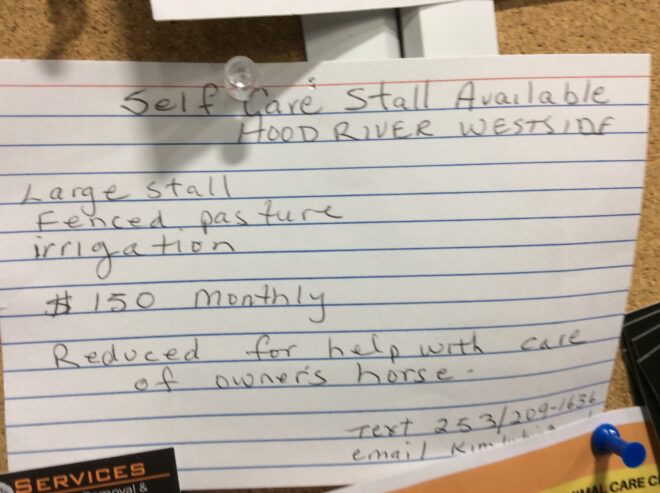 Self Care Stall Available
HOOD RIVER WESTSIDE
Large stall
Fenced pasture
irrigation
$150 monthly
Reduced for help with care
of owner's horse.
Text 253/209-1636
email
SERVICES
Removal &
ANIMAL CARE